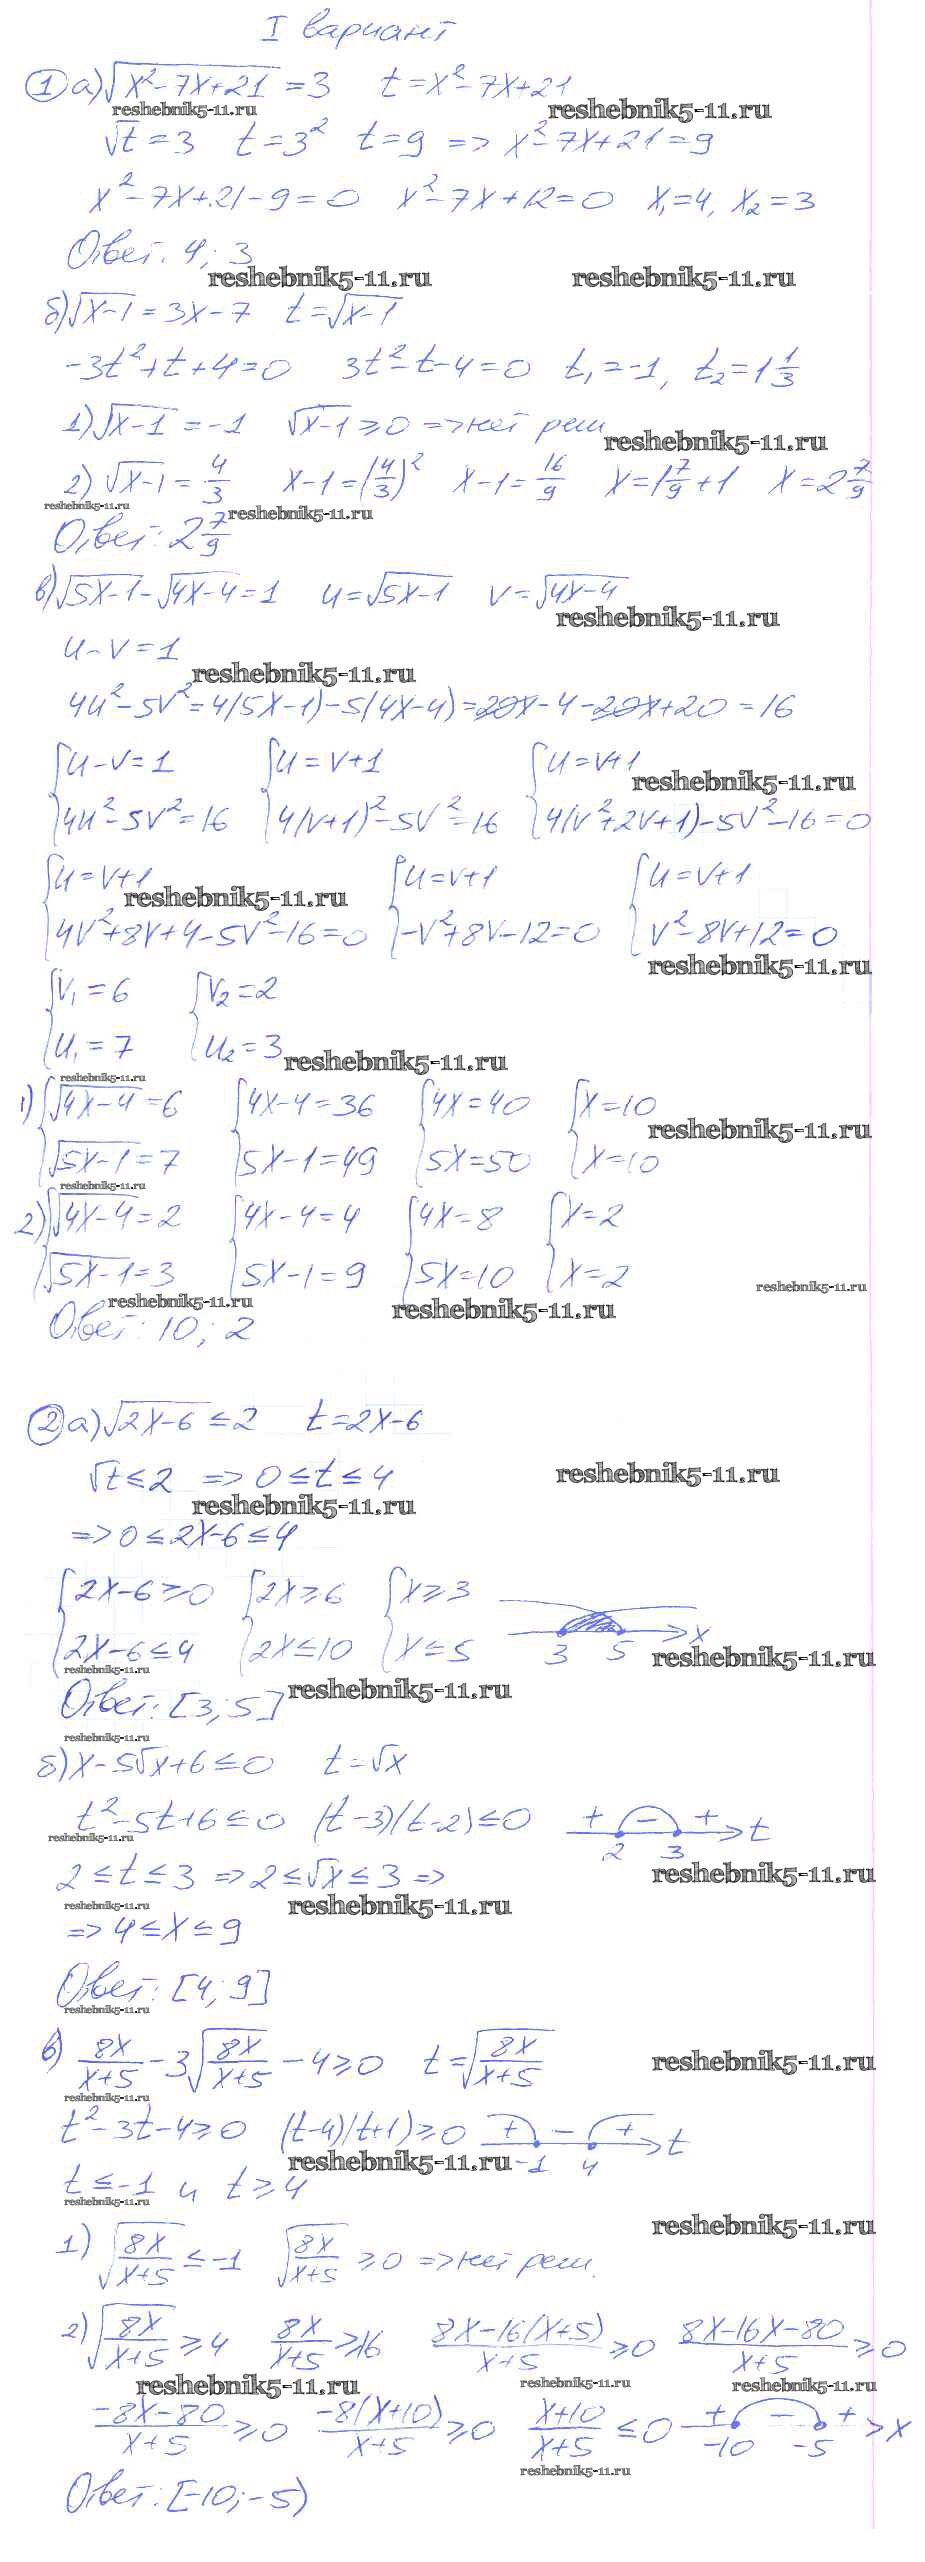 I вариант
① а) √(x²-7x+21) = 3   t = x²-7x+21
reshebnik5-11.ru   reshebnik5-11.ru
√t = 3   t = 3²   t = 9 => x²-7x+21 = 9
x²-7x+21-9 = 0   x²-7x+12 = 0   x₁ = 4, x₂ = 3
Ответ: 4; 3
reshebnik5-11.ru   reshebnik5-11.ru
б) √(x-1) = 3x-7   t = √(x-1)
-3t²+t+4 = 0   3t²-t-4 = 0   t₁ = -1, t₂ = 1 1/3
1) √(x-1) = -1   √(x-1) ≥ 0 => нет реш.
reshebnik5-11.ru
2) √(x-1) = 4/3   x-1 = (4/3)²   x-1 = 16/9   x = 1 7/9 + 1   x = 2 7/9
reshebnik5-11.ru   reshebnik5-11.ru
Ответ: 2 7/9
в) √(5x-1) - √(4x-4) = 1   u = √(5x-1)   v = √(4x-4)
reshebnik5-11.ru
u-v = 1
reshebnik5-11.ru
4u²-5v² = 4(5x-1)-5(4x-4) = 20x-4-20x+20 = 16
{u-v = 1   {u = v+1   {u = v+1
reshebnik5-11.ru
{4u²-5v² = 16   {4(v+1)²-5v² = 16   {4(v²+2v+1)-5v²-16 = 0
{u = v+1   {u = v+1   {u = v+1
reshebnik5-11.ru
{4v²+8v+4-5v²-16 = 0   {-v²+8v-12 = 0   {v²-8v+12 = 0
reshebnik5-11.ru
{v₁ = 6   {v₂ = 2
{u₁ = 7   {u₂ = 3
reshebnik5-11.ru
reshebnik5-11.ru
1) {√(4x-4) = 6   {4x-4 = 36   {4x = 40   {x = 10
reshebnik5-11.ru
{√(5x-1) = 7   {5x-1 = 49   {5x = 50   {x = 10
reshebnik5-11.ru
2) {√(4x-4) = 2   {4x-4 = 4   {4x = 8   {x = 2
{√(5x-1) = 3   {5x-1 = 9   {5x = 10   {x = 2
reshebnik5-11.ru
reshebnik5-11.ru   reshebnik5-11.ru
Ответ: 10; 2
② а) √(2x-6) ≤ 2   t = 2x-6
√t ≤ 2 => 0 ≤ t ≤ 4
reshebnik5-11.ru
reshebnik5-11.ru
=> 0 ≤ 2x-6 ≤ 4
{2x-6 ≥ 0   {2x ≥ 6   {x ≥ 3
{2x-6 ≤ 4   {2x ≤ 10   {x ≤ 5   3   5   x
reshebnik5-11.ru
reshebnik5-11.ru
reshebnik5-11.ru
Ответ: [3; 5]
reshebnik5-11.ru
б) x-5√x+6 ≤ 0   t = √x
t²-5t+6 ≤ 0   (t-3)(t-2) ≤ 0   +   -   +   t
reshebnik5-11.ru   2   3
2 ≤ t ≤ 3 => 2 ≤ √x ≤ 3 =>
reshebnik5-11.ru
reshebnik5-11.ru   reshebnik5-11.ru
=> 4 ≤ x ≤ 9
Ответ: [4; 9]
reshebnik5-11.ru
в) 8x/(x+5) - 3√(8x/(x+5)) - 4 ≥ 0   t = √(8x/(x+5))
reshebnik5-11.ru
reshebnik5-11.ru
t²-3t-4 ≥ 0   (t-4)(t+1) ≥ 0   +   -   +   t
reshebnik5-11.ru   -1   4
t ≤ -1 и t ≥ 4
reshebnik5-11.ru
reshebnik5-11.ru
1) √(8x/(x+5)) ≤ -1   √(8x/(x+5)) ≥ 0 => нет реш.
2) √(8x/(x+5)) ≥ 4   8x/(x+5) ≥ 16   (8x-16(x+5))/(x+5) ≥ 0   (8x-16x-80)/(x+5) ≥ 0
reshebnik5-11.ru   reshebnik5-11.ru   reshebnik5-11.ru
(-8x-80)/(x+5) ≥ 0   -8(x+10)/(x+5) ≥ 0   (x+10)/(x+5) ≤ 0   +   -   +   x
-10   -5
reshebnik5-11.ru
Ответ: [-10; -5)